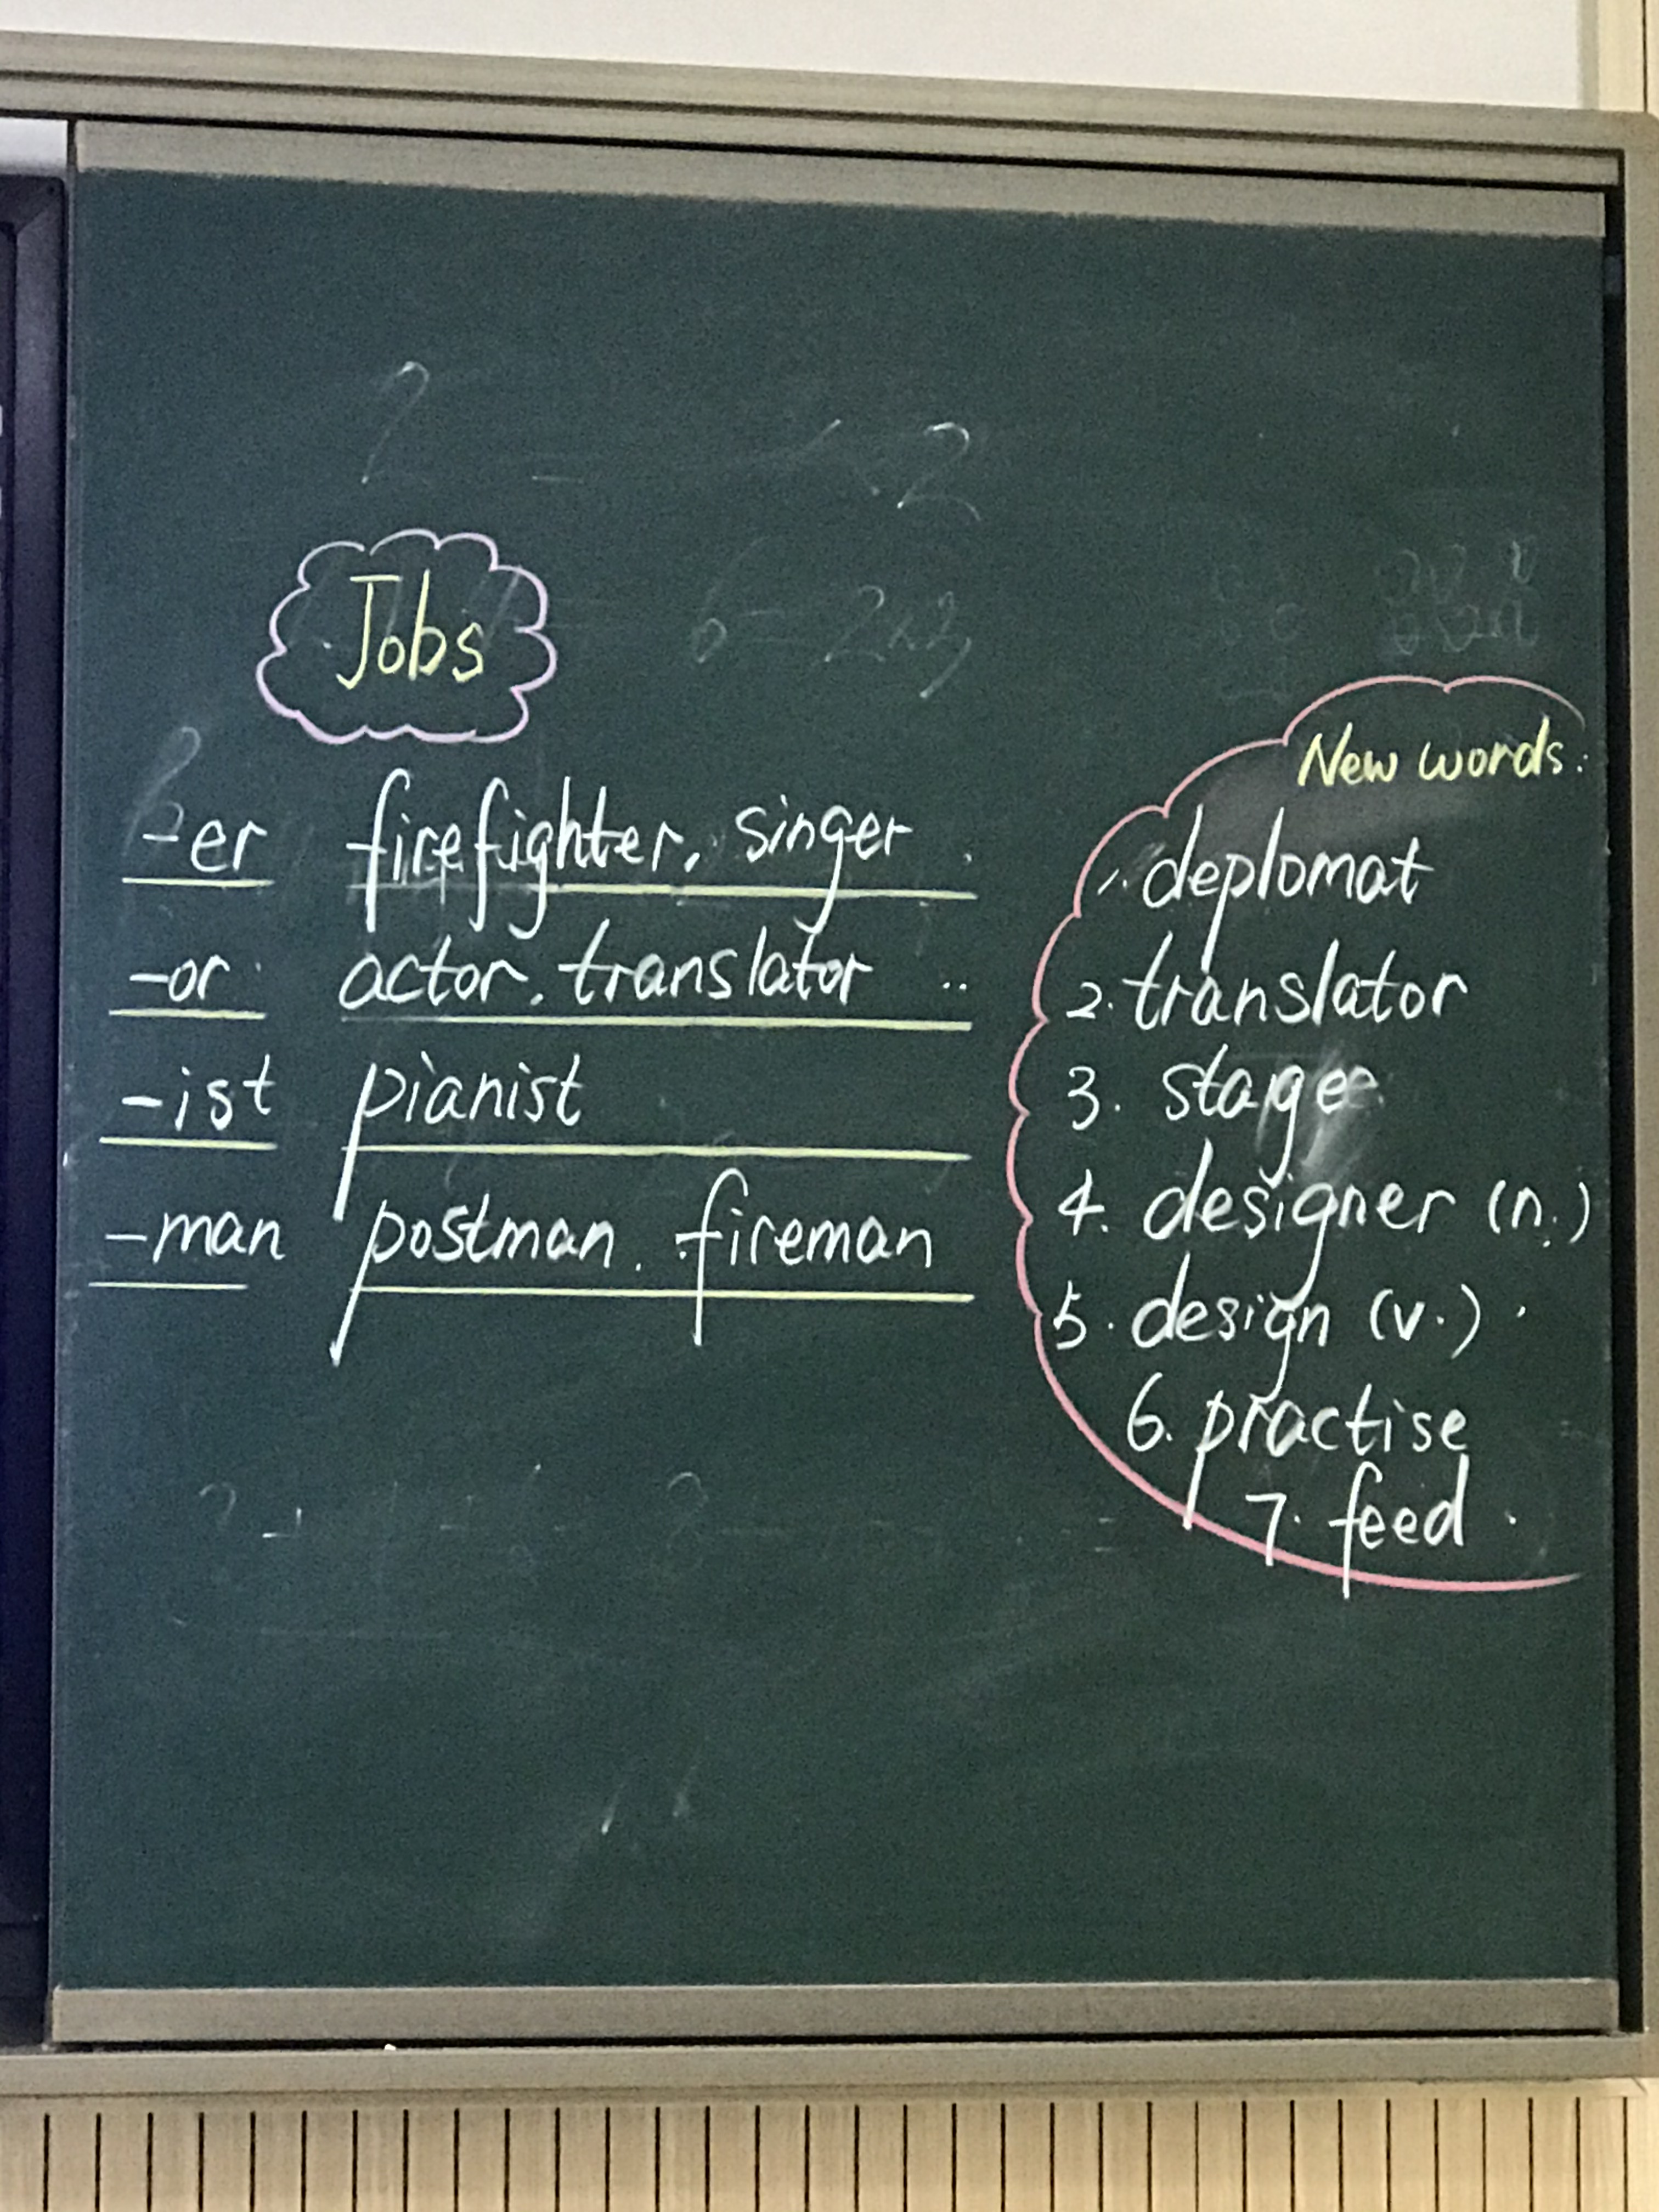 Jobs
-er firefighter, singer
-or actor, translator ..
-ist pianist
-man postman. fireman
New words:
1. deplomat
2. translator
3. stage
4. designer (n.)
5. design (v.)
6. practise
7. feed